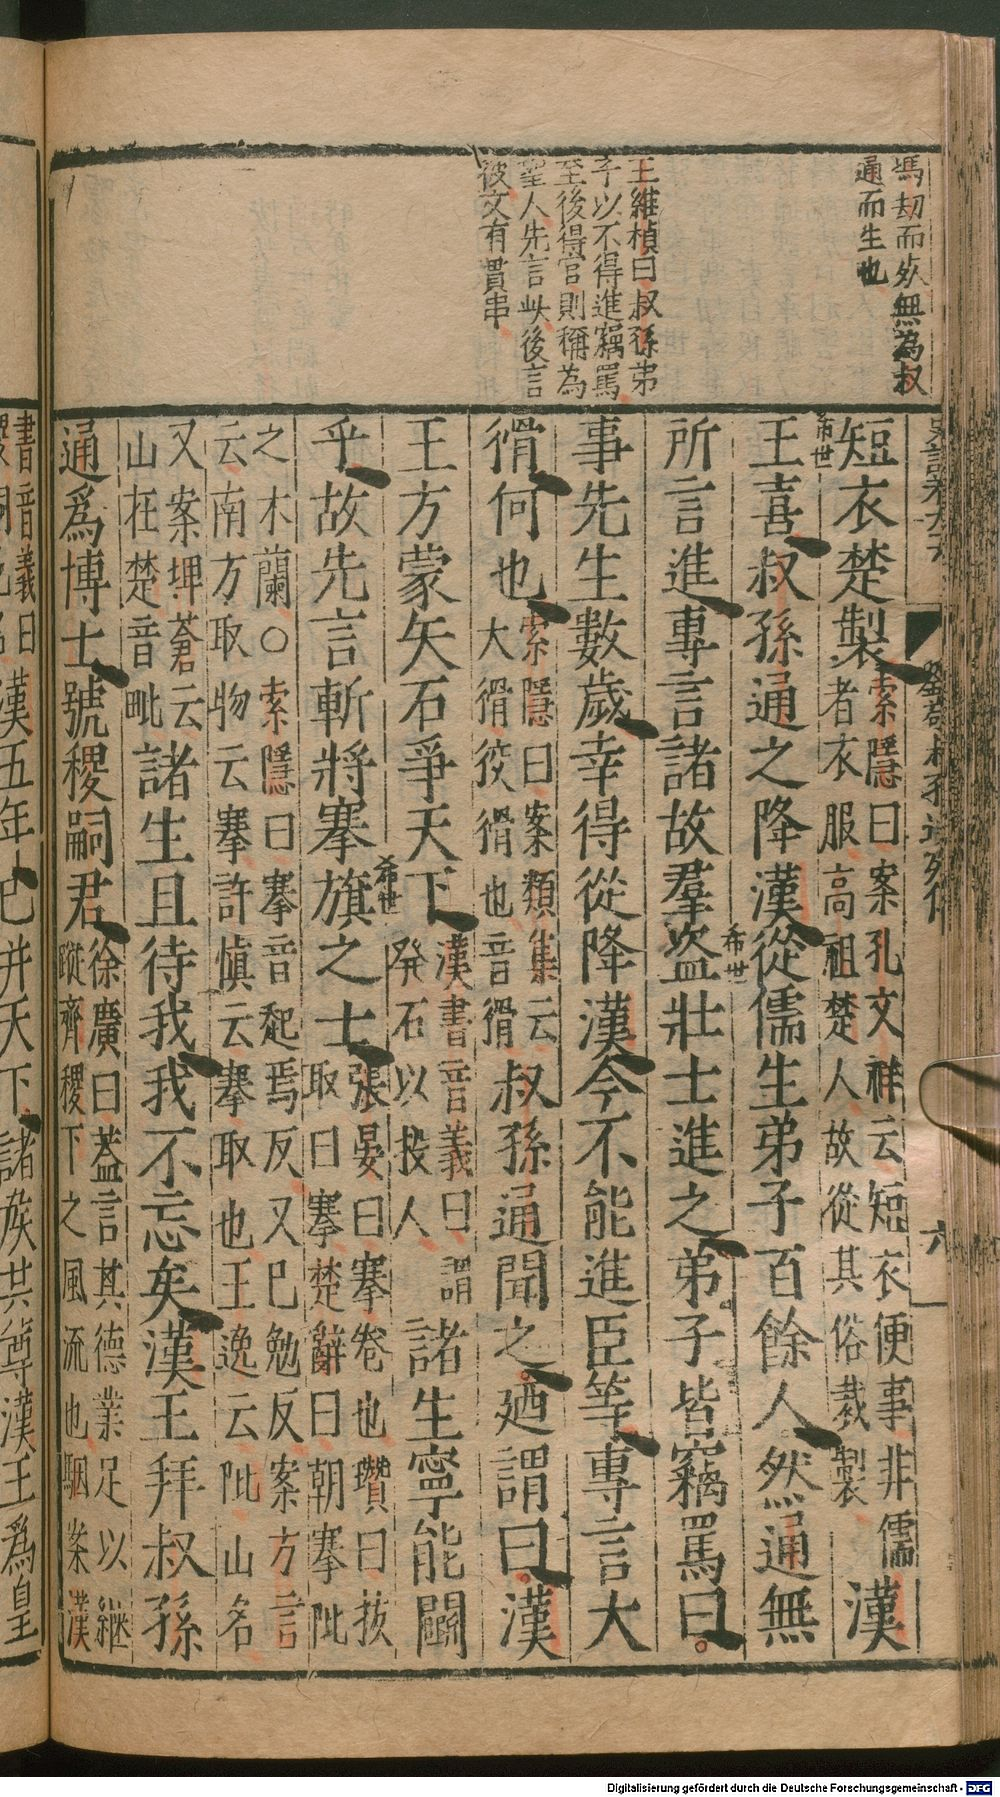 馮刧而死無為叔
通而生也
王維楨曰叔孫弟
子以不得進竊罵
至後得官則稱為
聖人先言此後言
彼文有貫串
劉敬叔孫通列傳
六
短衣楚製索隱曰案孔文祥云短衣便事非儒者衣服高祖楚人故從其俗裁製漢
希世
王喜叔孫通之降漢從儒生弟子百餘人然通無
希世
所言進專言諸故羣盜壯士進之弟子皆竊罵曰
事先生數歲幸得從降漢今不能進臣等專言大
猾何也索隱曰案類集云大猾狡猾也音滑叔孫通聞之廼謂曰漢
王方蒙矢石爭天下漢書音義曰謂發石以投人諸生寧能鬬
希世
乎故先言斬將搴旗之士張晏曰搴卷也瓚曰拔取曰搴楚辭曰朝搴阰
之木蘭○索隱曰搴音起焉反又己勉反案方言云南方取物云搴許慎云搴取也王逸云阰山名
又案埤蒼云山在楚音毗諸生且待我我不忘矣漢王拜叔孫
通爲博士號稷嗣君徐廣曰蓋言其德業足以繼蹤齊稷下之風流也駰案漢
書音義曰
漢五年已并天下諸侯共尊漢王爲皇
Digitalisierung gefördert durch die Deutsche Forschungsgemeinschaft - DFG